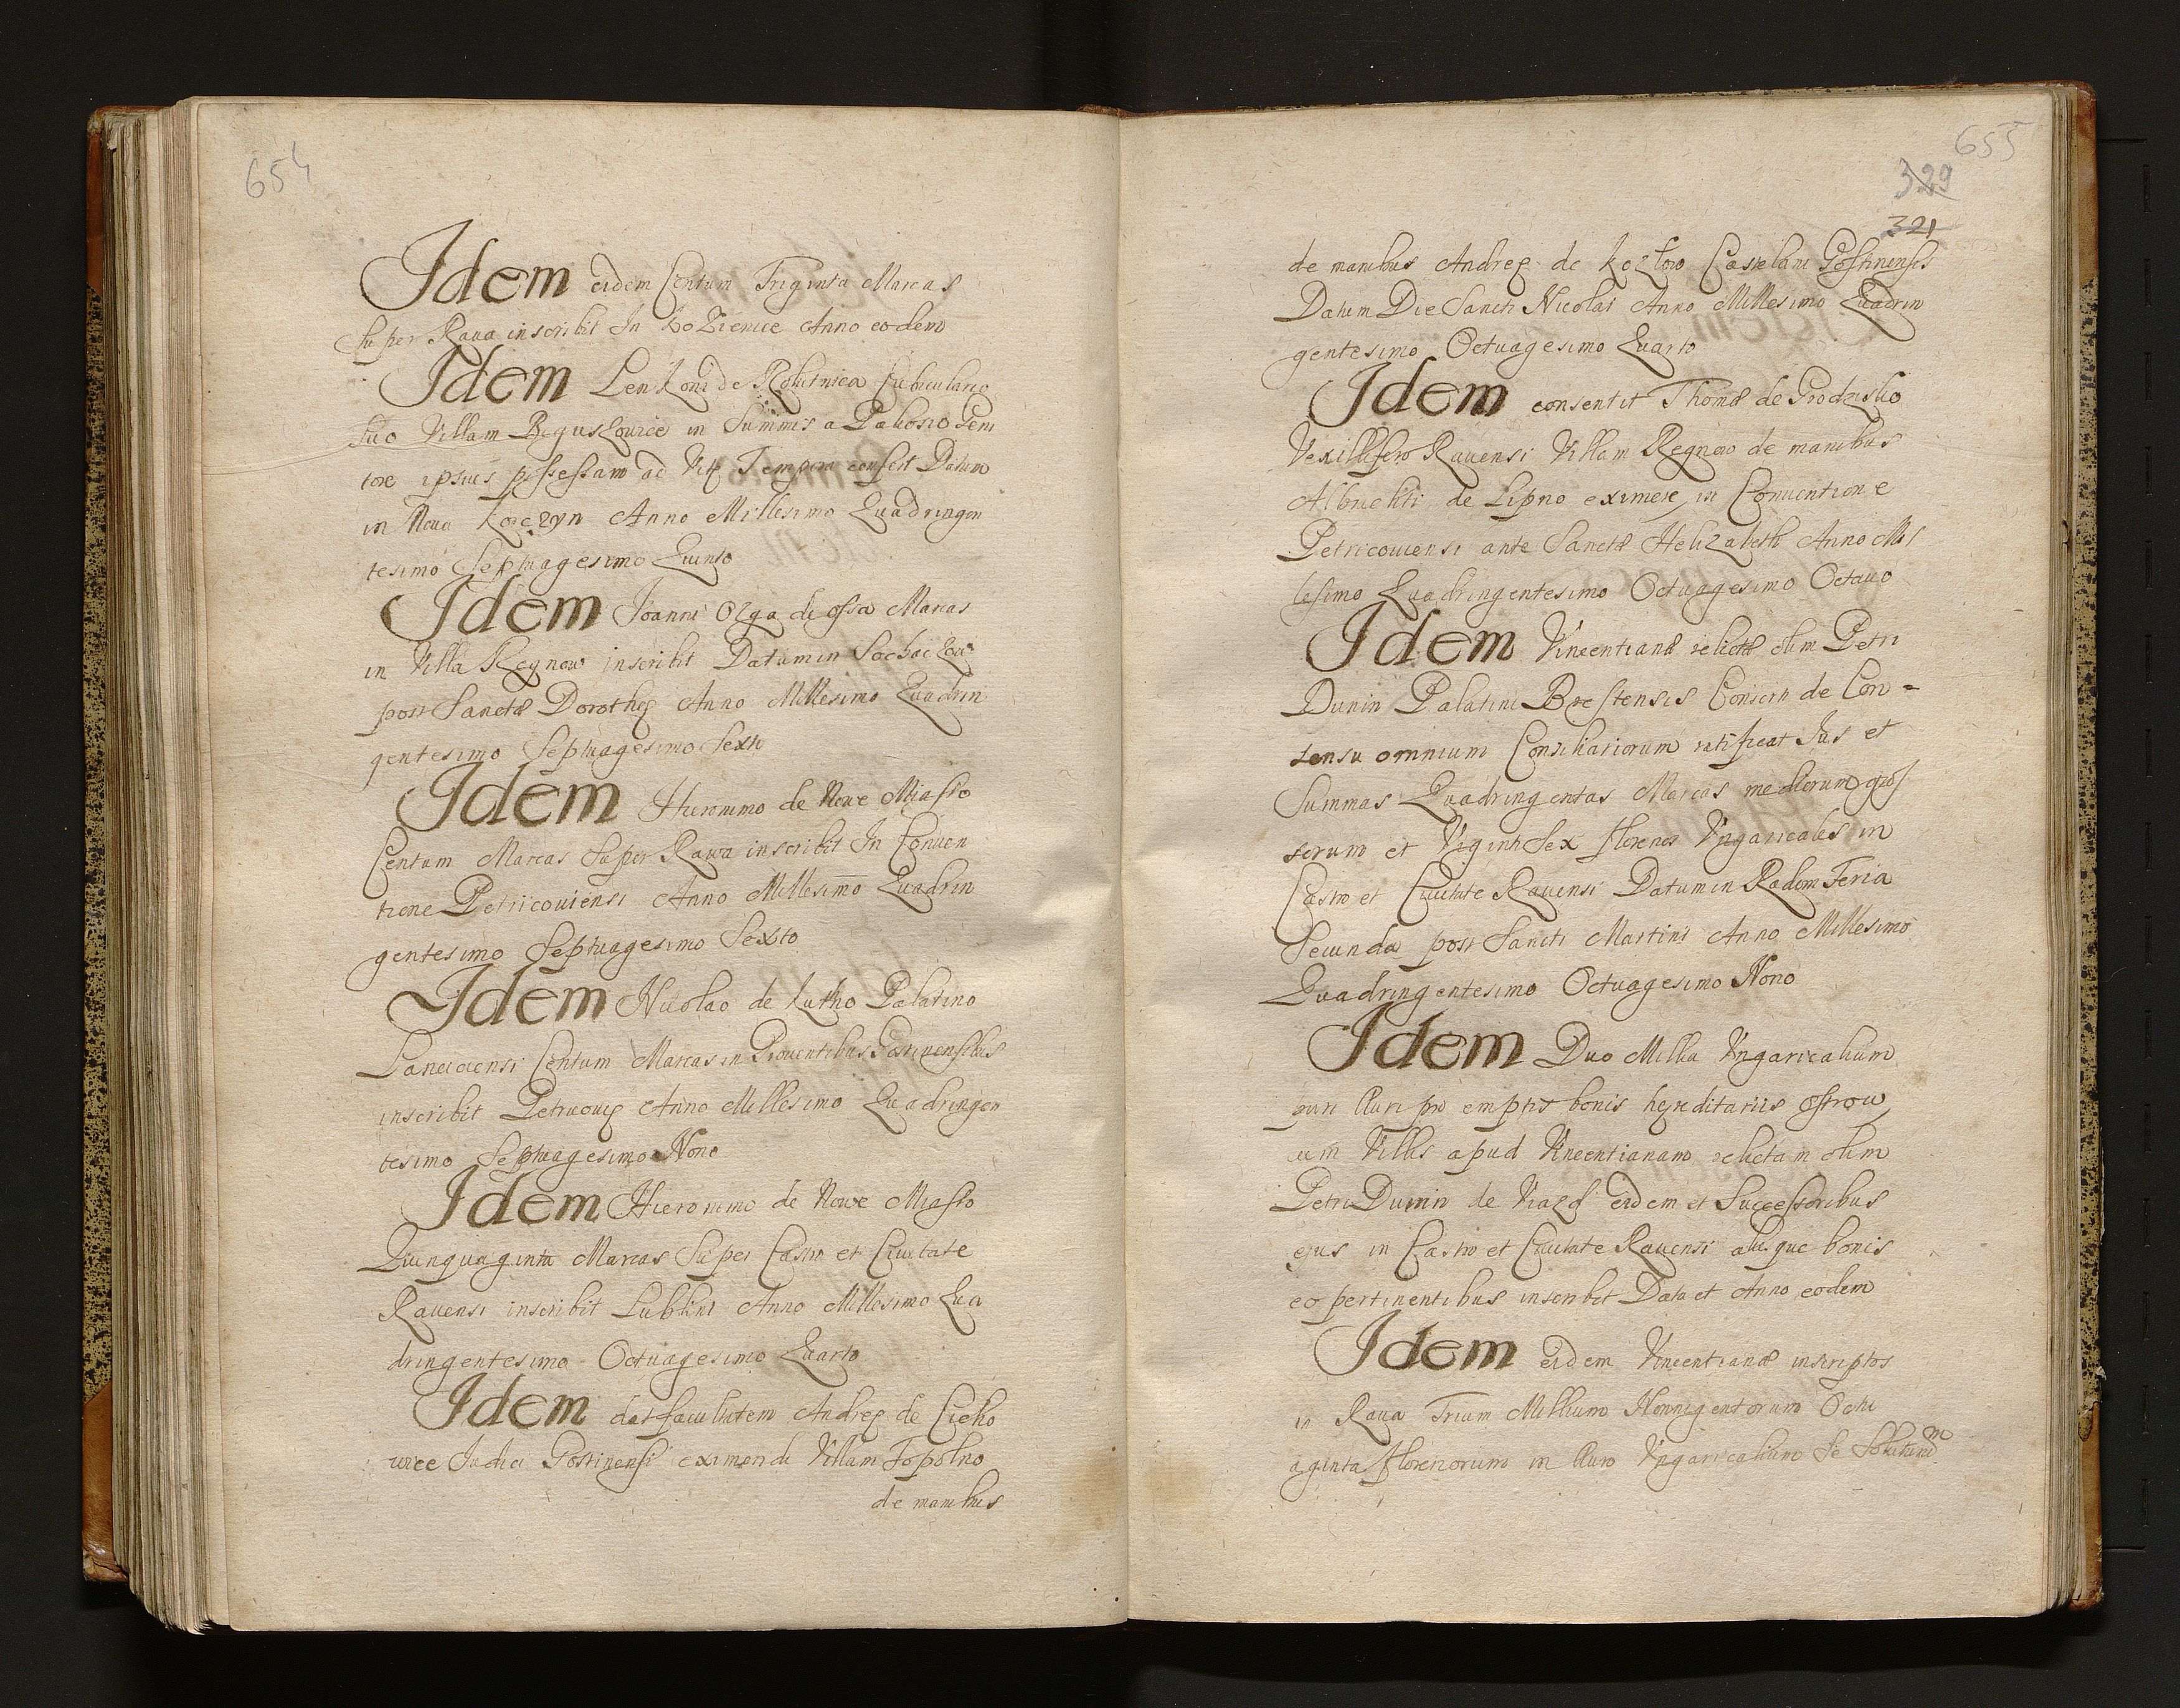 654
Idem eidem Centum Triginta Marcas
super Raua inscribit In Kozienice Anno eodem
Idem de Cubiculario
suo Villam in Summis a Pakosio Geni
tore ipsius possessam ad Vitę Tempora confert Datum
in Noua Anno Millesimo Quadringen
tesimo Septuagesimo Quinto
Idem Joanni Ozga de ossa Marcas
in Villa Regnow inscribit Datum in
post Sanctæ Dorotheę Anno Millesimo Quadrin
gentesimo Septuagesimo Sexto
Idem Hieronimo de Nowe Miasto
Centum Marcas super Rawa inscribit In Conuen
tione Petricouiensi Anno Millesimo Quadrin
gentesimo Septuagesimo Sexto
Idem Nicolao de Kutho Palatino
Lanciciensi Centum Marcas in Prouentibus Gostinensibus
inscribit Petricouię Anno Millesimo Quadringen
tesimo Septuagesimo Nono
Idem Hieronimo de Nowe Miasto
Quinquaginta Marcas super Castro et Ciuitate
Rauensi inscribit Lublini Anno Millesimo Qua
dringentesimo Octuagesimo Quarto
Idem dat facultatem Andreę de Cieko
wice Judici Gostinensi eximendi Villam Topolno
de manibus
655
329
321
de manibus Andreę de Castelani Gostinensis
Datum Die Sancti Nicolai Anno Millesimo Quadrin
gentesimo Octuagesimo Quarto
Idem consentit Thomæ de Grodzisko
Vexillifero Rauensi Villam Regnow de manibus
Albrichti de Lipno eximere in Conuentione
Petricouiensi ante Sanctæ Helizabeth Anno Mil
lesimo Quadringentesimo Octuagesimo Octauo
Idem Vincentianæ relictæ olim Petri
Dunin Palatini Brestensis Consorti de Con=
sensu omnium Consiliariorum ratificat Jus et
Summas Quadringentas Marcas mediorum gros
sorum et Viginti Sex florenos Vngaricales in
Castro et Ciuitate Rauensi Datum in Radom Feria
Secunda post Sancti Martini Anno Millesimo
Quadringentesimo Octuagesimo Nono
Idem Duo Millia Vngaricalium
puri Auri pro emptis bonis hęreditariis ostrow
cum Villis apud Vincentianam relictam olim
Petri Dunin de Viazd eidem et Successoribus
ejus in Castro et Ciuitate Rauensi alijsque bonis
eo pertinentibus inscribit Data et Anno eodem
Idem eidem Vincentianæ inscriptos
in Raua Trium Millium Nonnigentorum Octu
aginta florenorum in Auro Vngaricalium Se